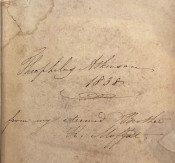 Theophilus Atkinson
1838
from my esteemed Brother
R. Moffat